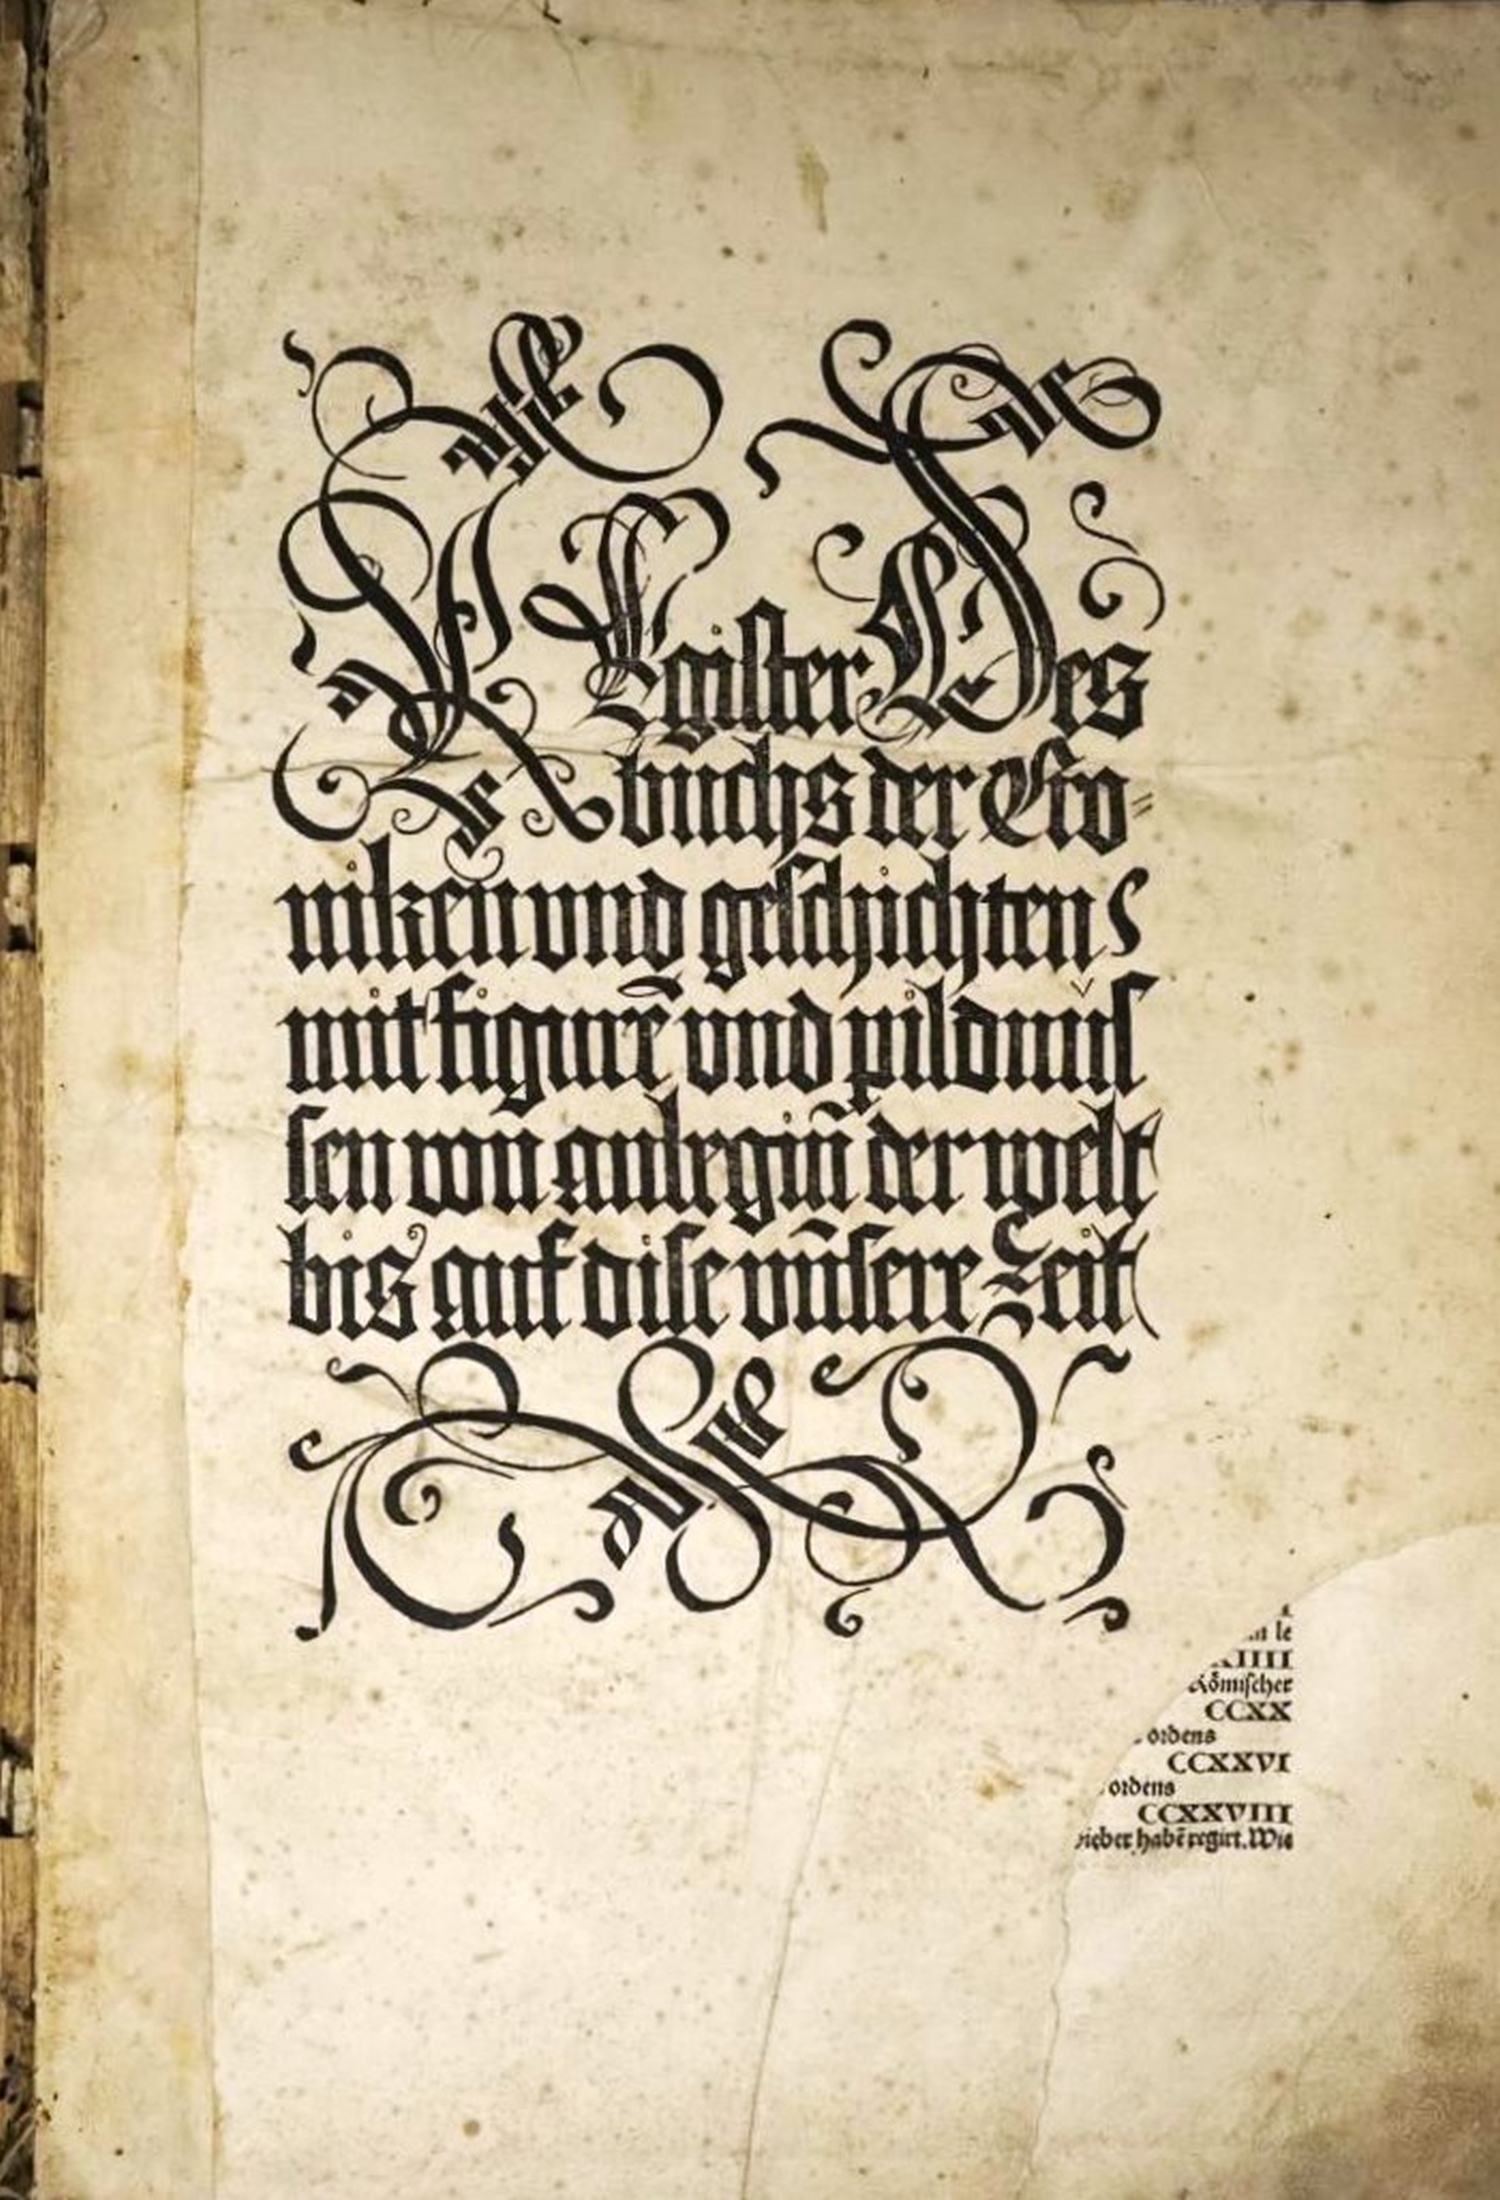 REgister Des
buchs der Cro=
niken vnd geschichten
mit figurē vnd pildnus
sen von anbegiñ der welt
bis auf dise vñsere Zeit
le
XIIII
Römischer
CCXX
ordens
CCXXVI
ordens
CCXXVIII
habē regirt. Wie